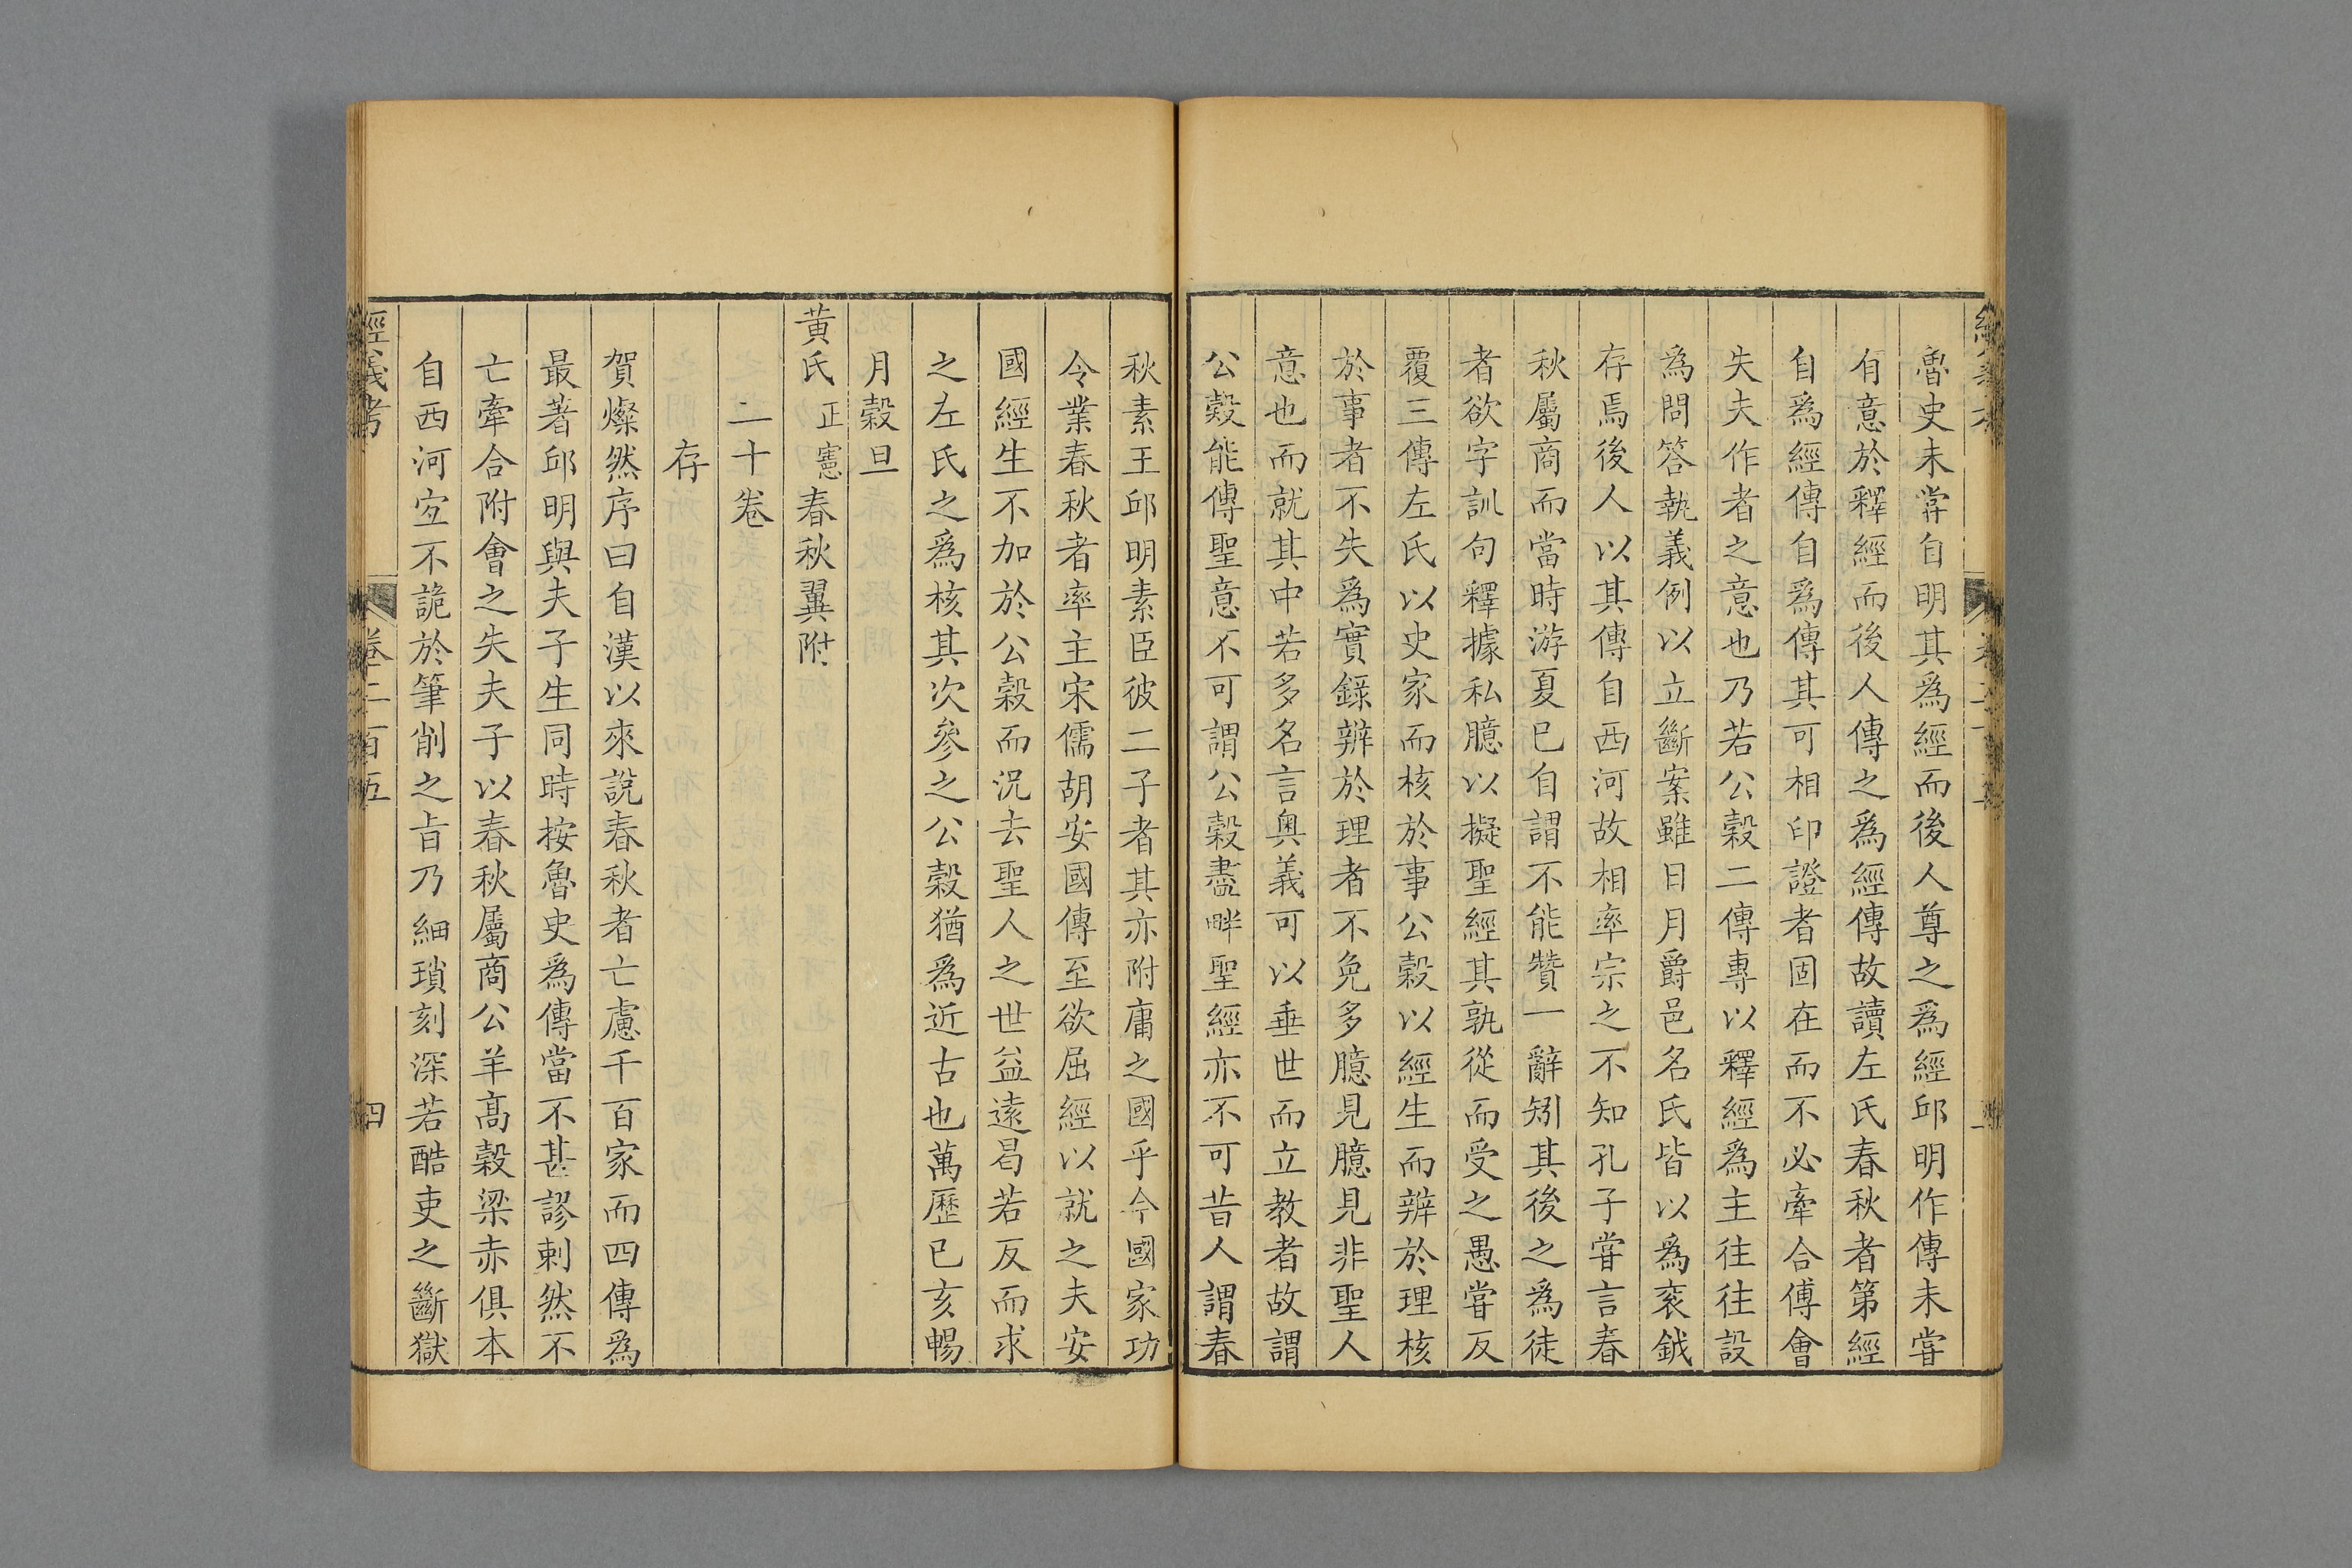 魯史未甞自明其爲經而後人尊之爲經邱明作傳未甞
有意於釋經而後人傳之爲經傳故讀左氏春秋者第經
自爲經傳自爲傳其可相印證者固在而不必牽合傅會
失夫作者之意也乃若公穀二傳專以釋經爲主往往設
爲問答執義例以立斷案雖日月爵邑名氏皆以爲衮鉞
存焉後人以其傳自西河故相率宗之不知孔子甞言春
秋屬商而當時游夏已自謂不能贊一辭矧其後之爲徒
者欲字訓句釋據私臆以擬聖經其孰從而受之愚甞反
覆三傳左氏以史家而核於事公穀以經生而辨於理核
於事者不失爲實錄辨於理者不免多臆見臆見非聖人
意也而就其中若多名言奥義可以垂世而立教者故謂
公穀能傳聖意不可謂公穀盡畔聖經亦不可昔人謂春
秋素王邱明素臣彼二子者其亦附庸之國乎今國家功
令業春秋者率主宋儒胡安國傳至欲屈經以就之夫安
國經生不加於公穀而况去聖人之世益遠曷若反而求
之左氏之爲核其次參之公穀猶爲近古也萬歷已亥暢
月穀旦
黄氏正憲春秋翼附
二十卷
存
賀燦然序曰自漢以來說春秋者亡慮千百家而四傳爲
最著邱明與夫子生同時按魯史爲傳當不甚謬剌然不
亡牽合附會之失夫子以春秋屬商公羊高穀梁赤俱本
自西河宐不詭於筆削之旨乃細瑣刻深若酷吏之斷獄
經義考
卷二百五
四